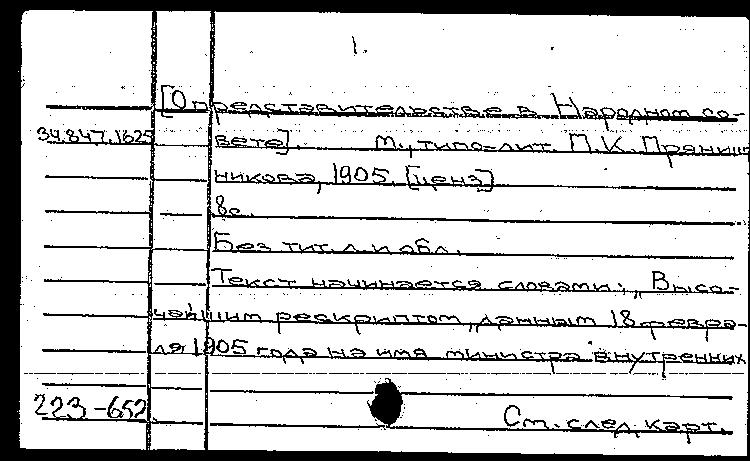 1.
[О представительстве в Народном со-
34.847.1625 вете]. М., типо-лит. П.К. Пряниш-
никова, 1905. [ценз]
8с.
Без тит. л. и обл.
Текст начинается словами: „Высо-
чайшим рескриптом, данным 18 февра-
ля 1905 года на имя министра внутренних
223-652 См. след. карт.